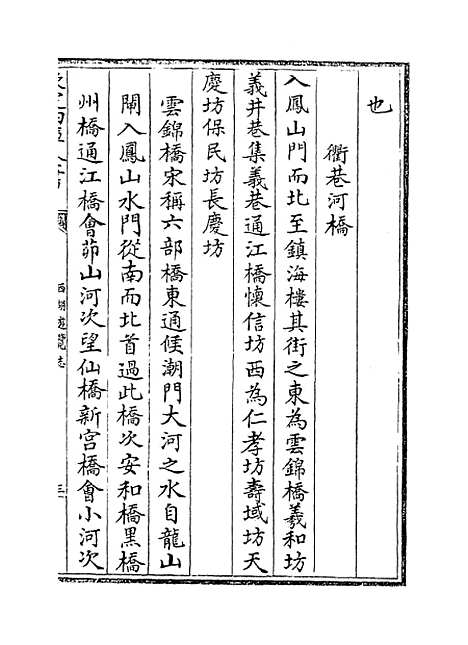 也
衢巷河橋
入鳳山門而北至鎮海樓其街之東為雲錦橋義和坊
義井巷集義巷通江橋懷信坊西為仁孝坊壽域坊天
慶坊保民坊長慶坊
雲錦橋宋稱六部橋東通𠉀潮門大河之水自龍山
閘入鳳山水門從南而北首過此橋次安和橋黑橋
州橋通江橋會茆山河次望仙橋新宮橋會小河次
西湖遊覽志
三